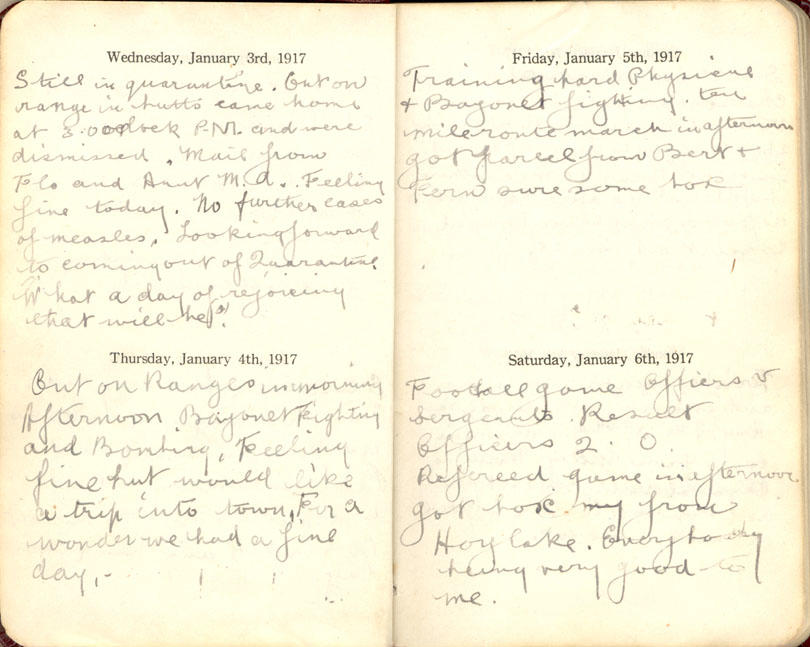 Wednesday, January 3rd, 1917
Still in quarantine. Out on
range in butts came home
at 3.00 oclock P.M. and were
dismissed. Mail from
Flo and Aunt M.A.. Feeling
fine today. No further cases
of measles. Looking forward
to coming out of Quarantine.
What a day of rejoicing
that will be!
Thursday, January 4th, 1917
Out on Ranges in morning
Afternoon Bayonet Fighting
and Bombing, Feeling
fine but would like
a trip into town. For a
wonder we had a fine
day,-
Friday, January 5th, 1917
Training hard Physical
& Bayonet fighting. ten
mile route march in afternoon
got parcel from Bert &
Fern sure some box
Saturday, January 6th, 1917
Football game Officers v
Sergents. Result
Officers 2. 0.
Refereed game in afternoon.
got box from
Hoylake. Everybody
being very good to
me.